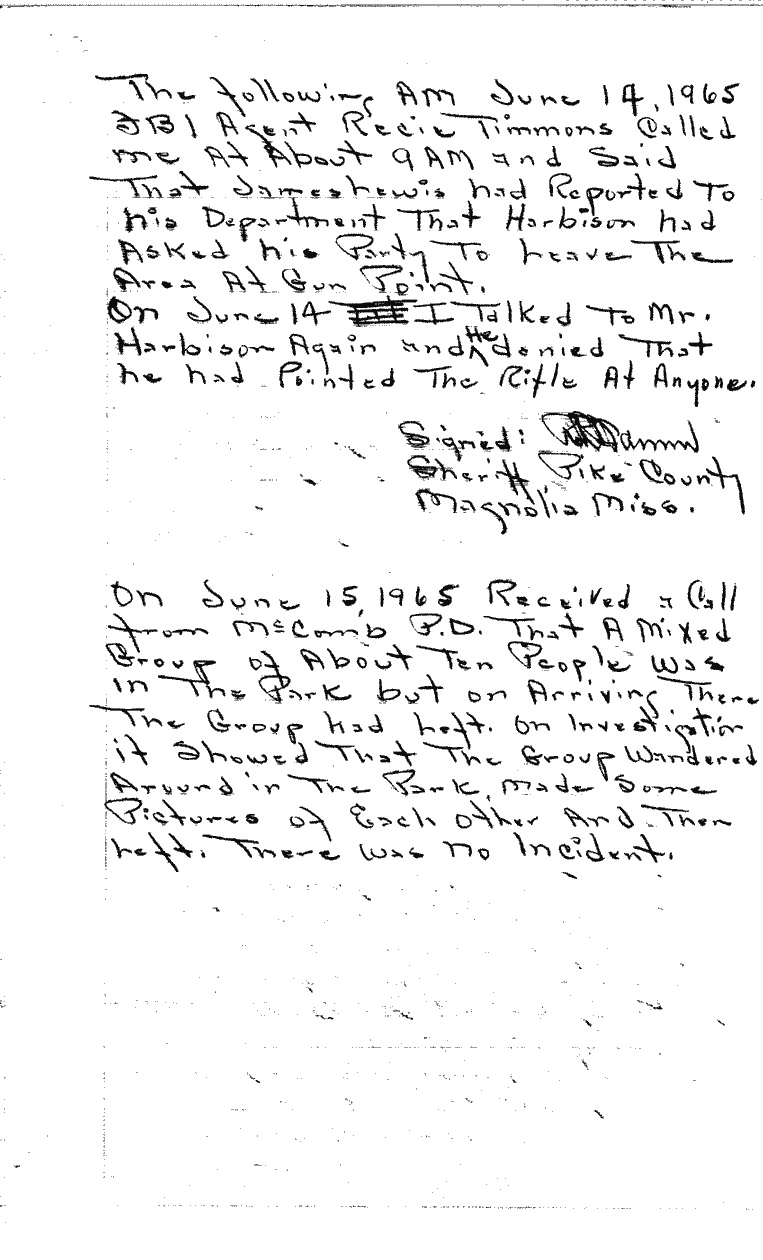 The following AM June 14, 1965
FBI Agent Recie Timmons Called
me At About 9 AM and Said
That James Lewis had Reported To
his Department That Harbison had
Asked his Party To Leave The
Area At Gun Point.
On June 14 I Talked To Mr.
Harbison Again and He denied That
he had Pointed The Rifle At Anyone.
Signed:
Sheriff Pike County
Magnolia Miss.
On June 15, 1965 Received a Call
from McComb P.D. That A Mixed
Group of About Ten People was
in The Park but on Arriving There
The Group had Left. On Investigation
it Showed That The Group Wandered
Around in The Park, made Some
Pictures of Each other And Then
Left. There was no Incident.